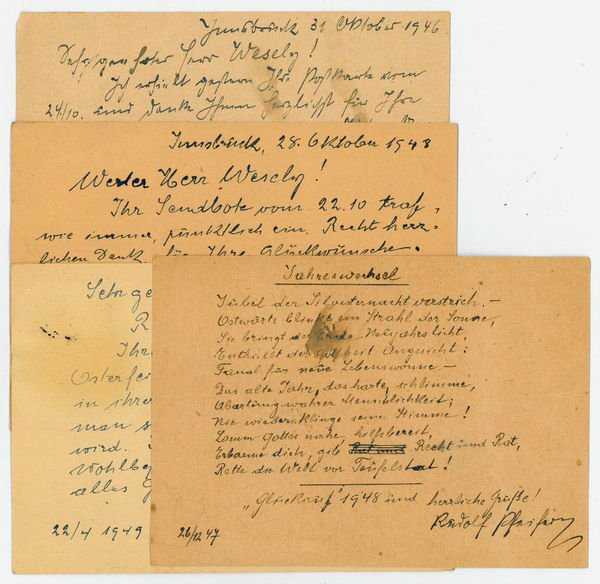 Innsbruck 31 Oktober 1946.
Sehr geehrter Herr Wesely!
Ich erhielt gestern Ihre Postkarte vom
24/10. und danke Ihnen herzlichst für Ihre
Innsbruck, 28. Oktober 1948
Werter Herr Wesely!
Ihr Sendbote vom 22.10 traf,
wie immer, pünktlich ein. Recht herz-
lichen Dank für Ihre Glückwünsche.
Sehr ge
Ihre
Osterfei
in ihrer
man s
wird.
Wohlbe
alles G
22/4 1949
Jahreswechsel
Jubel der Silvesternacht verstrich. –
Ostwärts blinkt ein Strahl der Sonne,
Sie bringt des Neujahrslicht,
Enthüllt der Angesicht:
Fanal für neue Lebenswonne. –
Das alte Jahr, das harte, schlimme,
Abartung wahrer Menschlichkeit;
Nie wiederklinge seine Stimme!
Lamm Gottes nahe, hilfsbereit,
Erbarme dich, gib Recht und Rat,
Rette die Welt vor Teufelstat!
„Glückauf" 1948 und herrliche Grüße!
26/12 47
Rudolf Pfeifer